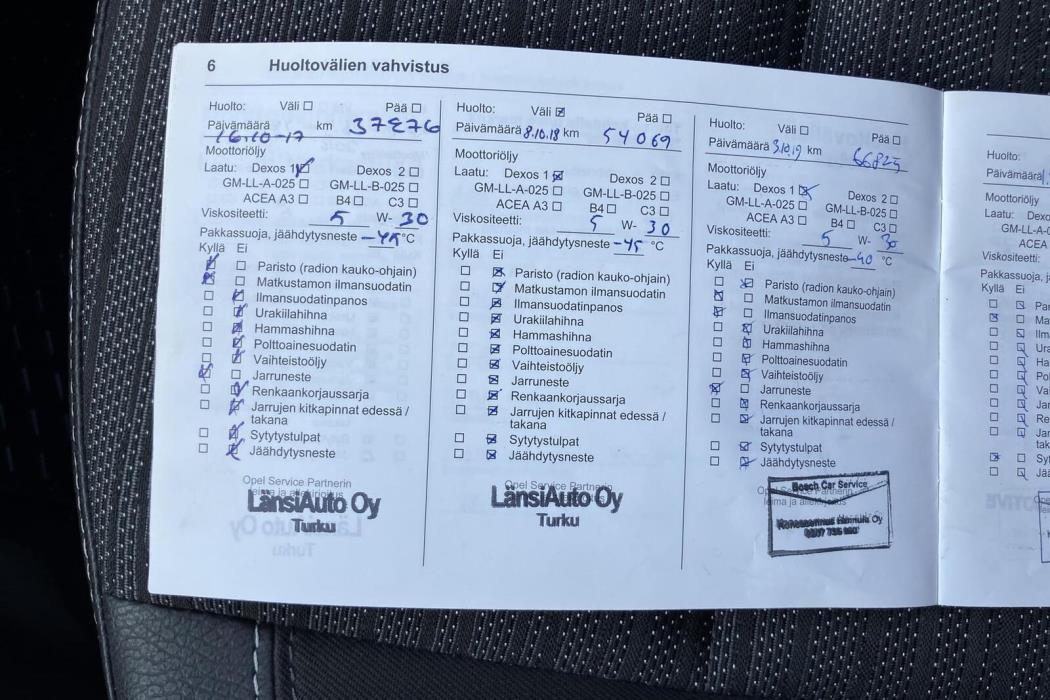 6 Huoltovälien vahvistus
Huolto: Väli ☐ Pää ☐
Päivämäärä 16.10-17 km 37276
Moottoriöljy
Laatu: Dexos 1 ☒ Dexos 2 ☐
GM-LL-A-025 ☐ GM-LL-B-025 ☐
ACEA A3 ☐ B4 ☐ C3 ☐
Viskositeetti: 5 W- 30
Pakkassuoja, jäähdytysneste -45 °C
Kyllä Ei
☒ ☐ Paristo (radion kauko-ohjain)
☒ ☐ Matkustamon ilmansuodatin
☐ ☒ Ilmansuodatinpanos
☐ ☒ Urakiilahihna
☐ ☒ Hammashihna
☐ ☒ Polttoainesuodatin
☐ ☒ Vaihteistoöljy
☒ ☐ Jarruneste
☐ ☒ Renkaankorjaussarja
☐ ☒ Jarrujen kitkapinnat edessä /
takana
☐ ☒ Sytytystulpat
☐ ☒ Jäähdytysneste
Opel Service Partnerin
leima ja allekirjoitus
LänsiAuto Oy
Turku
Huolto: Väli ☒ Pää ☐
Päivämäärä 8.10.18 km 54069
Moottoriöljy
Laatu: Dexos 1 ☒ Dexos 2 ☐
GM-LL-A-025 ☐ GM-LL-B-025 ☐
ACEA A3 ☐ B4 ☐ C3 ☐
Viskositeetti: 5 W- 30
Pakkassuoja, jäähdytysneste -45 °C
Kyllä Ei
☐ ☒ Paristo (radion kauko-ohjain)
☐ ☒ Matkustamon ilmansuodatin
☐ ☒ Ilmansuodatinpanos
☐ ☒ Urakiilahihna
☐ ☒ Hammashihna
☐ ☒ Polttoainesuodatin
☐ ☒ Vaihteistoöljy
☐ ☒ Jarruneste
☐ ☒ Renkaankorjaussarja
☐ ☒ Jarrujen kitkapinnat edessä /
takana
☐ ☒ Sytytystulpat
☐ ☒ Jäähdytysneste
Opel Service Partnerin
LänsiAuto Oy
Turku
Huolto: Väli ☐ Pää ☐
Päivämäärä 3.10.19 km 66825
Moottoriöljy
Laatu: Dexos 1 ☒ Dexos 2 ☐
GM-LL-A-025 ☐ GM-LL-B-025 ☐
ACEA A3 ☐ B4 ☐ C3 ☐
Viskositeetti: 5 W- 30
Pakkassuoja, jäähdytysneste -40 °C
Kyllä Ei
☐ ☒ Paristo (radion kauko-ohjain)
☒ ☐ Matkustamon ilmansuodatin
☒ ☐ Ilmansuodatinpanos
☐ ☒ Urakiilahihna
☐ ☒ Hammashihna
☐ ☒ Polttoainesuodatin
☐ ☒ Vaihteistoöljy
☒ ☐ Jarruneste
☐ ☒ Renkaankorjaussarja
☐ ☒ Jarrujen kitkapinnat edessä /
takana
☐ ☒ Sytytystulpat
☐ ☒ Jäähdytysneste
Bosch Car Service
leima ja allekirjoitus
Oy
Huolto:
Päivämäärä
Moottoriöljy
Laatu: Dexo
GM-LL-A-0
ACEA
Viskositeetti:
Pakkassuoja, jä
Kyllä Ei
☐ ☒ Par
☒ ☐ Ma
☐ ☒ Ilm
☐ ☒ Ura
☐ ☒ Ha
☐ ☒ Pol
☐ ☒ Vai
☐ ☒ Jar
☐ ☒ Re
☐ ☒ Jar
tak
☒ ☐ Sy
☐ ☒ Jä